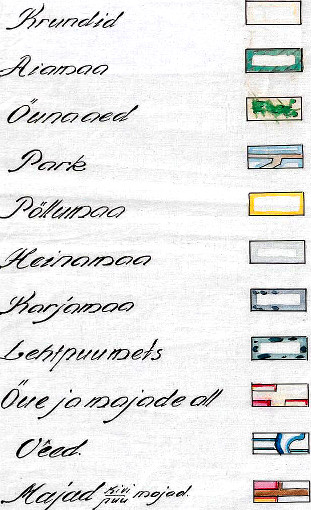 Krundid
Aiamaa
Õunaaed
Park
Põllumaa
Heinamaa
Karjamaa
Lehtpuumets
Õue ja majade all
Veed.
Majad kivi/puu majad.